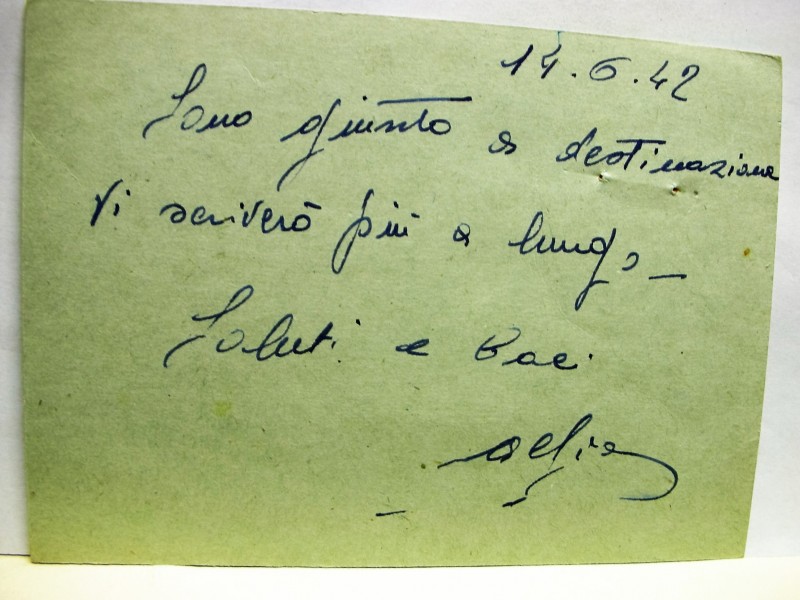 14.6.42
Sono giunto a destinazione
Vi scriverò più a lungo _
Saluti e Baci